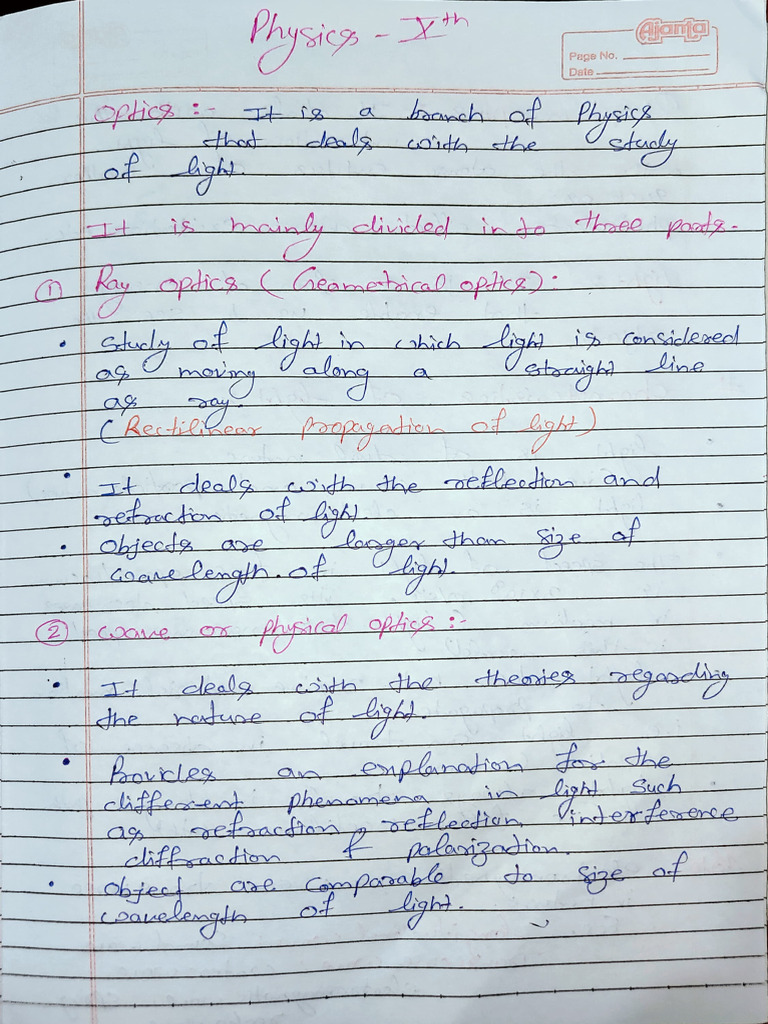 Physics - Xth
Ajanta
Page No.
Date
Optics :- It is a branch of Physics
that deals with the study
of light.
It is mainly divided in to three parts.
① Ray optics (Geametrical optics):-
• Study of light in which light is considered
as moving along a straight line
as ray.
(Rectilinear Propagation of light)
• It deals with the reflection and
refraction of light
• Objects are larger than size of
wavelength. of light.
② wave or physical optics :-
• It deals with the theories regarding
the nature of light.
• Provides an explanation for the
different phenomena in light such
as refraction, reflection, interference
diffraction & polarization.
• Object are comparable to size of
wavelength of light.